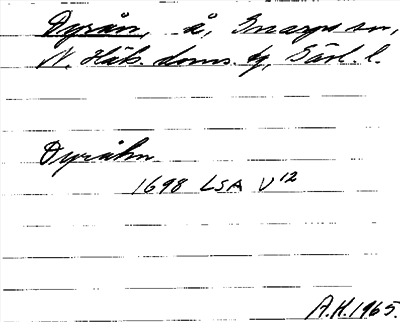 Dyrån, å, Gnarps sn,
N. Häls. doms. h, Gävl. l.
Dyråhn
1698 LSA V12
A.H. 1965.